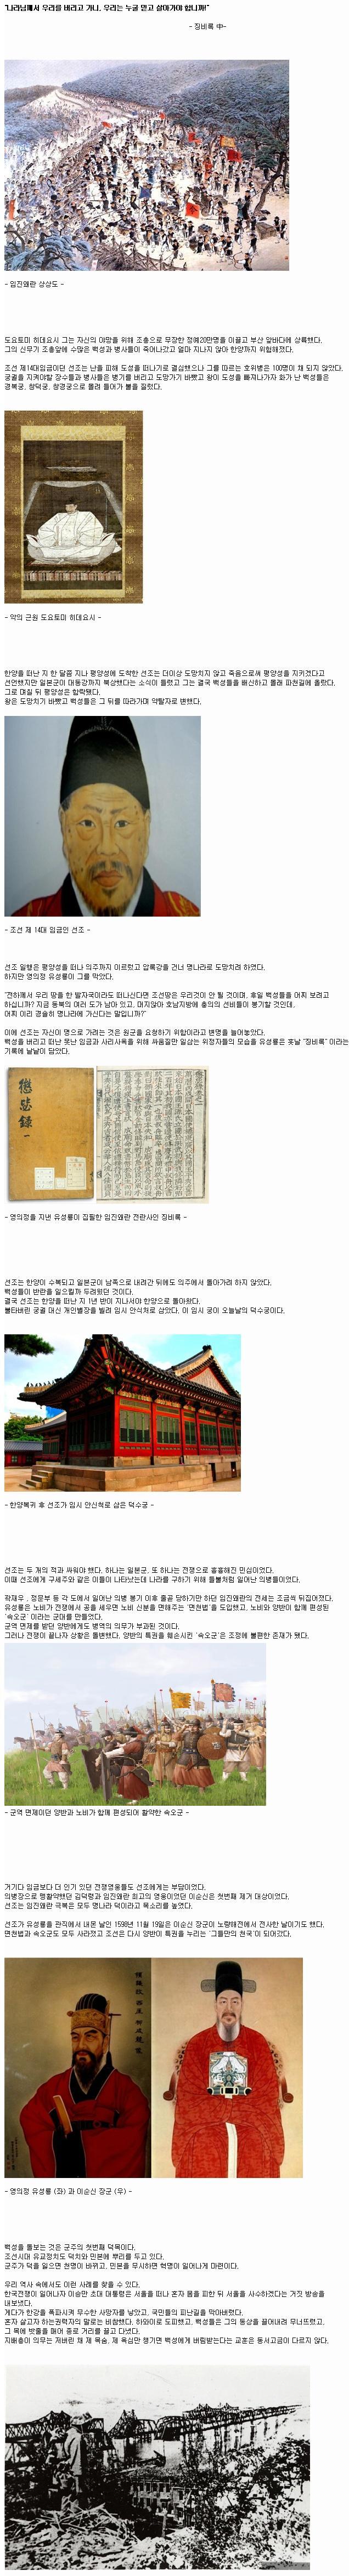 "나라님께서 우리를 버리고 가니, 우리는 누굴 믿고 살아가야 합니까!"
- 징비록 中-
- 임진왜란 상상도 -
도요토미 히데요시 그는 자신의 야망을 위해 조총으로 무장한 정예20만명을 이끌고 부산 앞바다에 상륙했다.
그의 신무기 조총앞에 수많은 백성과 병사들이 죽어나갔고 얼마 지나지 않아 한양까지 위험해졌다.
조선 제14대임금이던 선조는 난을 피해 도성을 떠나기로 결심했으나 그를 따르는 호위병은 100명이 채 되지 않았다.
궁궐을 지켜야할 장수들과 병사들은 병기를 버리고 도망가기 바빴고 왕이 도성을 빠져나가자 화가 난 백성들은
경복궁, 창덕궁, 창경궁으로 몰려 들어가 불을 질렀다.
- 악의 근원 도요토미 히데요시 -
한양을 떠난 지 한 달쯤 지나 평양성에 도착한 선조는 더이상 도망치지 않고 죽음으로써 평양성을 지키겠다고
선언했지만 일본군이 대동강까지 북상했다는 소식이 들렸고 그는 결국 백성들을 배신하고 몰래 파천길에 올랐다.
그로 며칠 뒤 평양성은 함락됐다.
왕은 도망치기 바빴고 백성들은 그 뒤를 따라가며 약탈자로 변했다.
- 조선 제 14대 임금인 선조 -
선조 일행은 평양성을 떠나 의주까지 이르렀고 압록강을 건너 명나라로 도망치려 하였다.
하지만 영의정 유성룡이 그를 막았다.
"전하께서 우리 땅을 한 발자국이라도 떠나신다면 조선땅은 우리것이 안 될 것이며, 후일 백성들을 어찌 보려고
하십니까? 지금 동북의 여러 도가 남아 있고, 머지않아 호남지방에 충의의 선비들이 봉기할 것인데,
어찌 이리 경솔히 명나라에 가신다는 말입니까?"
이에 선조는 자신이 명으로 가려는 것은 원군을 요청하기 위함이라고 변명을 늘어놓았다.
백성을 버리고 떠난 못난 임금과 사리사욕을 위해 싸움질만 일삼는 위정자들의 모습을 유성룡은 훗날 "징비록" 이라는
기록에 낱낱이 담았다.
懲毖錄
一
- 영의정을 지낸 유성룡이 집필한 임진왜란 전란사인 징비록 -
선조는 한양이 수복되고 일본군이 남쪽으로 내려간 뒤에도 의주에서 돌아가려 하지 않았다.
백성들이 반란을 일으킬까 두려웠던 것이다.
결국 선조는 한양을 떠난 지 1년 반이 지나서야 한양으로 돌아왔다.
불타버린 궁궐 대신 개인별장을 빌려 임시 안식처로 삼았다. 이 임시 궁이 오늘날의 덕수궁이다.
- 한양복귀 후 선조가 임시 안신처로 삼은 덕수궁 -
선조는 두 개의 적과 싸워야 했다. 하나는 일본군, 또 하나는 전쟁으로 흉흉해진 민심이었다.
이때 선조에게 구세주와 같은 이들이 나타났는데 나라를 구하기 위해 들불처럼 일어난 의병들이었다.
곽재우 , 정문부 등 각 도에서 일어난 의병 봉기 이후 줄곧 당하기만 하던 임진왜란의 전세는 조금씩 뒤집어졌다.
유성룡은 노비가 전쟁에서 공을 세우면 노비 신분을 면해주는 '면천법'을 도입했고, 노비와 양반이 함께 편성된
'속오군' 이라는 군대를 만들었다.
군역 면제를 받던 양반에게도 병역의 의무가 부과된 것이다.
그러나 전쟁이 끝나자 상황은 돌변했다. 양반의 특권을 훼손시킨 '속오군'은 조정에 불편한 존재가 됐다.
- 군역 면제이던 양반과 노비가 함께 편성되어 활약한 속오군 -
거기다 임금보다 더 인기 있던 전쟁영웅들도 선조에게는 부담이었다.
의병장으로 맹활약했던 김덕령과 임진왜란 최고의 영웅이었던 이순신은 첫번째 제거 대상이었다.
선조는 임진왜란 극복은 모두 명나라 덕이라고 목소리를 높였다.
선조가 유성룡을 관직에서 내몬 날인 1598년 11월 19일은 이순신 장군이 노량해전에서 전사한 날이기도 했다.
면천법과 속오군도 모두 사라졌고 조선은 다시 양반이 특권을 누리는 '그들만의 천국'이 되어갔다.
- 영의정 유성룡 (좌) 과 이순신 장군 (우) -
백성을 돌보는 것은 군주의 첫번째 덕목이다.
조선시대 유교정치도 덕치와 민본에 뿌리를 두고 있다.
군주가 덕을 잃으면 천명이 바뀌고, 민본을 무시하면 혁명이 일어나게 마련이다.
우리 역사 속에서도 이런 사례를 찾을 수 있다.
한국전쟁이 일어나자 이승만 초대 대통령은 서울을 떠나 혼자 몸을 피한 뒤 서울을 사수하겠다는 거짓 방송을
내보냈다.
게다가 한강을 폭파시켜 무수한 사망자를 낳았고, 국민들의 피난길을 막아버렸다.
혼자 살고자 하는권력자의 말로는 비참했다. 하와이로 도피했고, 백성들은 그의 동상을 끌어내려 무너뜨렸고,
그 목에 밧줄을 매어 종로 거리를 끌고 다녔다.
지배층이 의무는 저버린 채 제 목숨, 제 욕심만 챙기면 백성에게 버림받는다는 교훈은 동서고금이 다르지 않다.